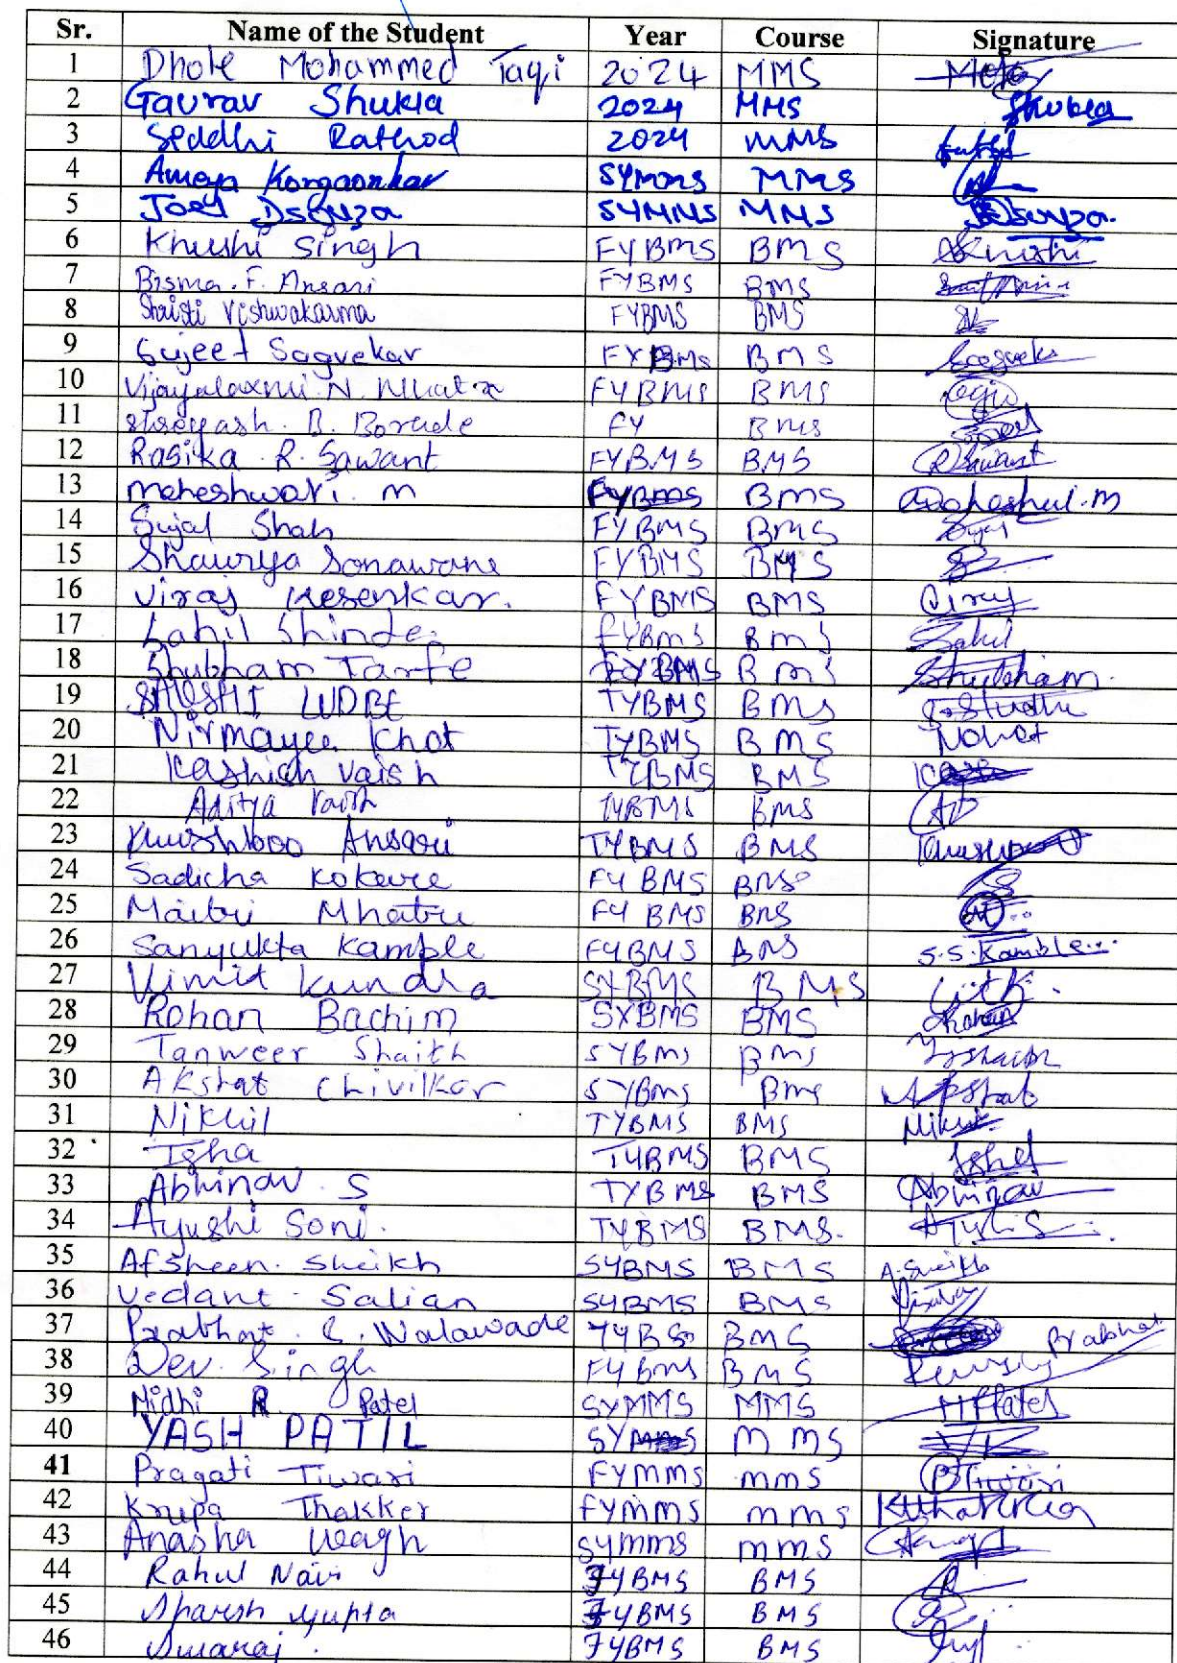 Sr. Name of the Student Year Course Signature
1 Dhole Mohammed Taqi 2024 MMS
2 Gaurav Shukla 2024 MMS Shukla
3 Siddhi Rathod 2024 MMS
4 Ameya Korgaonkar SYMMS MMS
5 Joel Dsouza SYMMS MMS Dsouza.
6 Khushi Singh FYBMS BMS Khushi
7 Bisma. F. Ansari FYBMS BMS
8 Vishwakarma FYBMS BMS
9 Sujeet Sagvekar FYBMS BMS Sagvekar
10 Vijayalaxmi N. Mhatre FYBMS BMS
11 Shreyash. B. Borade FY BMS
12 Rasika R. Sawant FYBMS BMS RSawant
13 Maheshwari. M FYBMS BMS
14 Sujal Shah FYBMS BMS Sujal
15 Shaurya Sonawane FYBMS BMS
16 Viraj Kesarkar. FYBMS BMS Viraj
17 Sahil Shinde. FYBMS BMS Sahil
18 Shubham Tarfe FYBMS BMS Shubham.
19 TYBMS BMS
20 Nirmayee Khot TYBMS BMS NKhot
21 Kashish Vaish TYBMS BMS
22 Aditya Vaish TYBMS BMS
23 Khushboo Ansari TYBMS BMS
24 Sadicha Kokare FYBMS BMS
25 Maitri Mhatre FYBMS BMS
26 Sanyukta Kamble FYBMS BMS S.S.Kamble...
27 Vimit Kundra SYBMS BMS
28 Rohan Bachim SYBMS BMS Rohan
29 Tanweer Shaikh SYBMS BMS
30 Akshat Chivilkar SYBMS BMS Akshat
31 Nikhil TYBMS BMS Nikhil
32 Isha TYBMS BMS Isha
33 Abhinav. S TYBMS BMS Abhinav
34 Ayushi Soni. TYBMS BMS. Ayushi S
35 Afsheen. Sheikh SYBMS BMS A.Sheikh
36 Vedant. Salian SYBMS BMS
37 Prabhat. S. Walawade BMS Prabhat
38 Dev. Singh FYBMS BMS
39 Nidhi R Patel SYMMS MMS
40 YASH PATIL SYMMS MMS
41 Pragati Tiwari FYMMS MMS PTiwari
42 Krupa Thakker FYMMS MMS
43 Anasha Wagh SYMMS MMS
44 Rahul Nair FYBMS BMS
45 Sparsh Gupta FYBMS BMS
46 Swaraj. FYBMS BMS